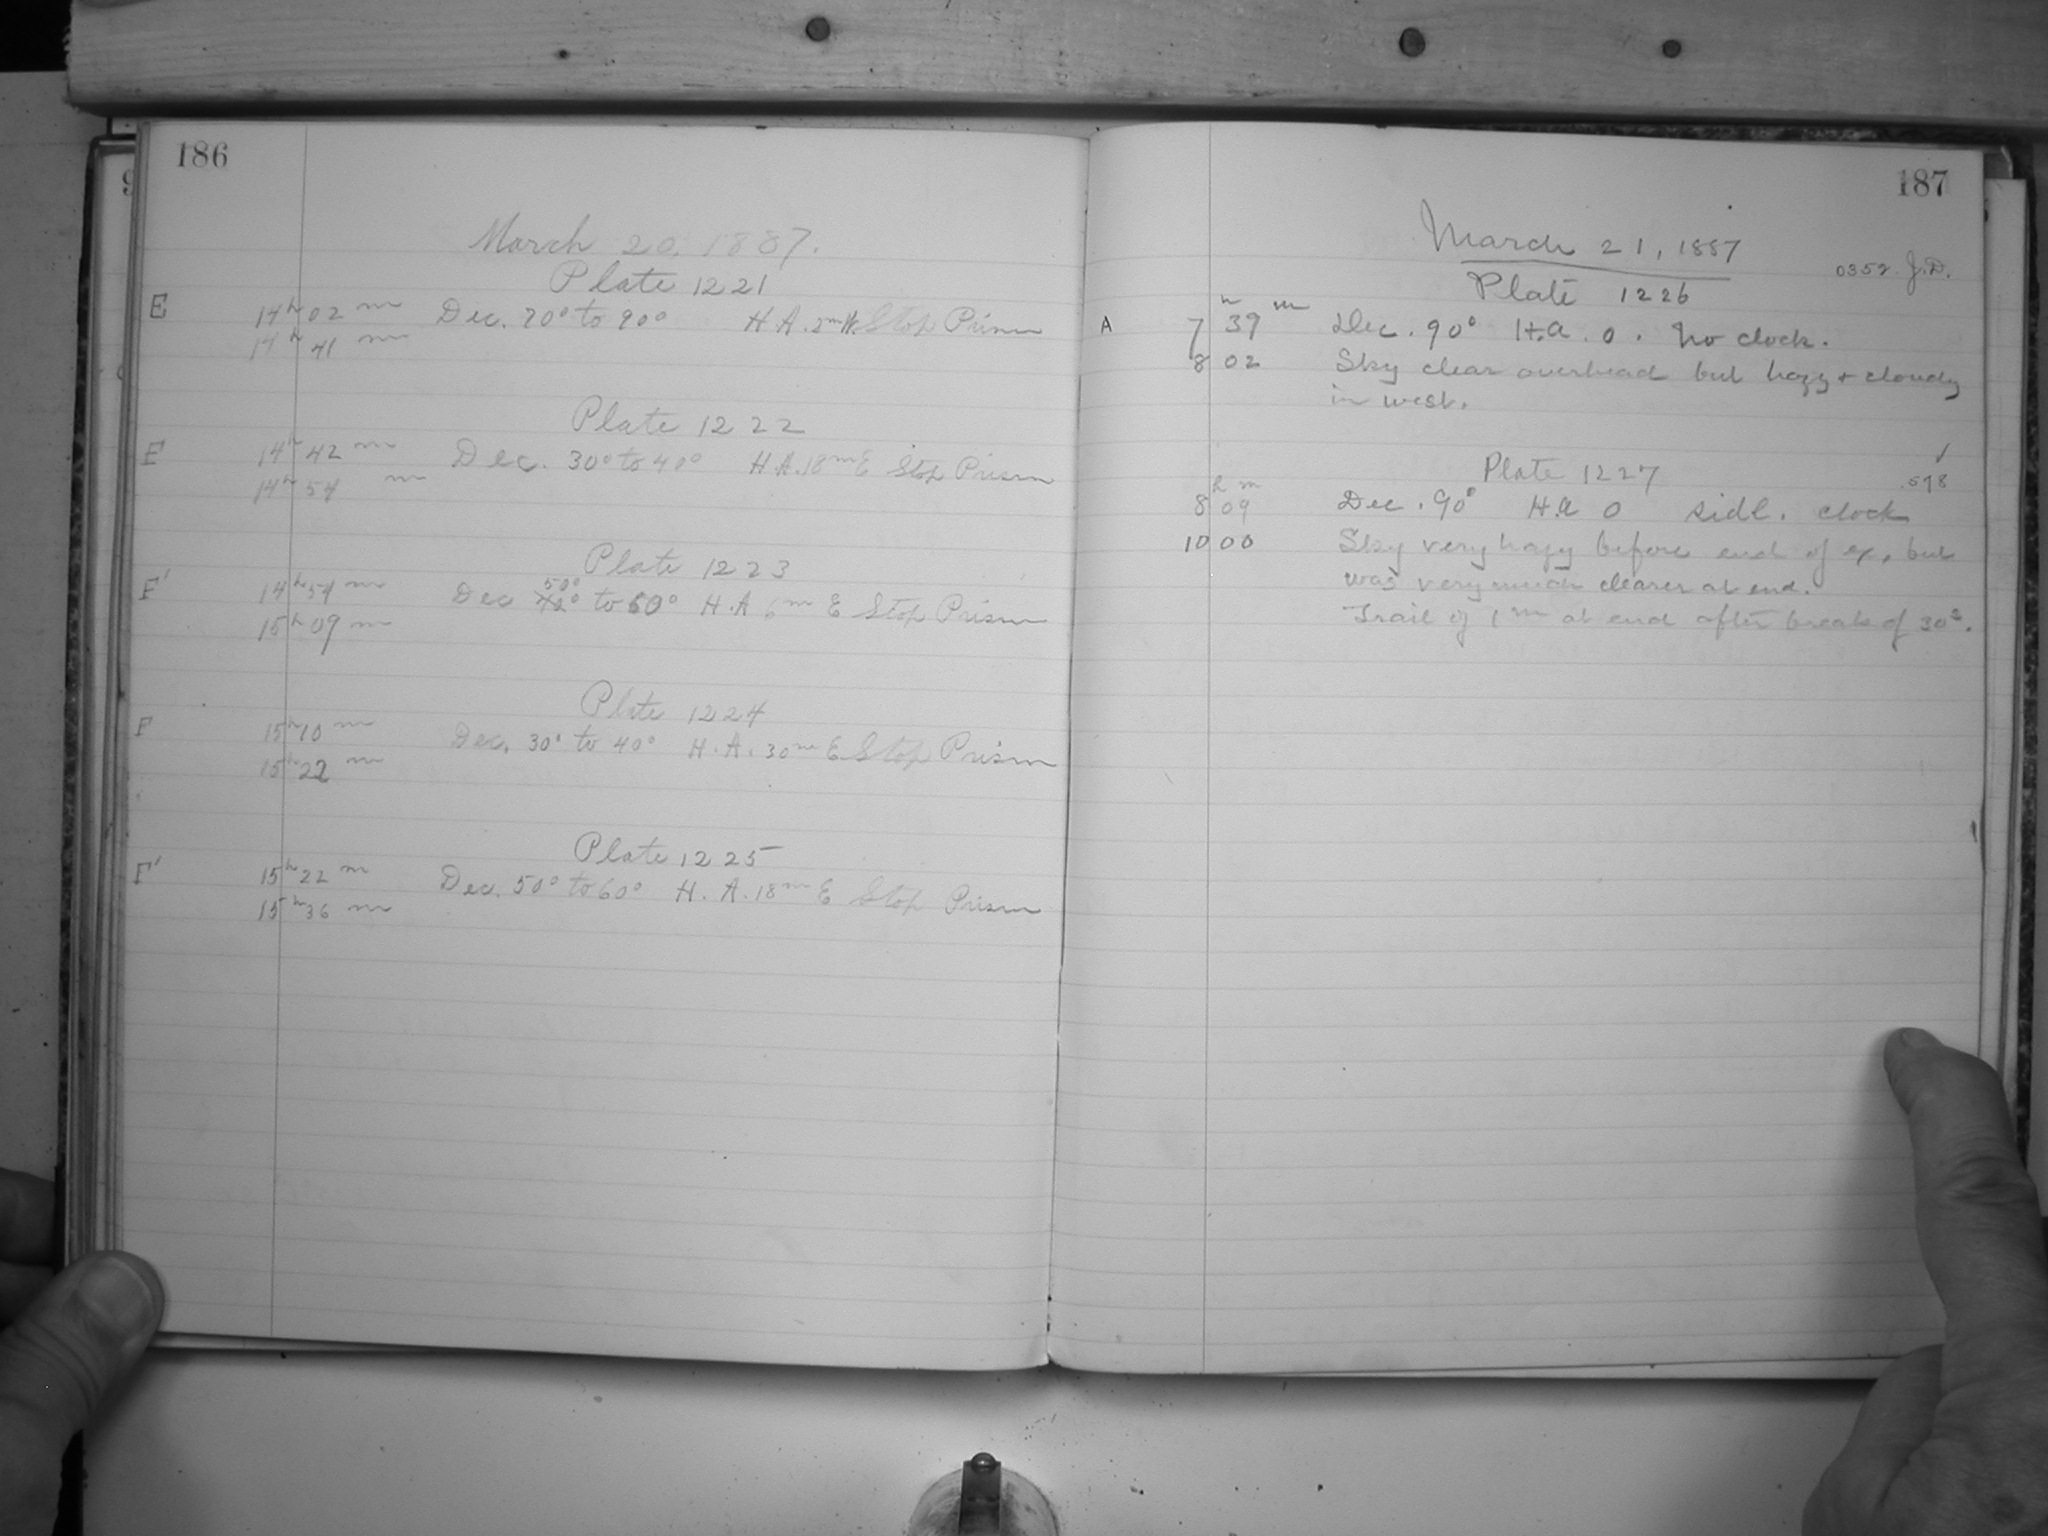 186
March 20, 1887.
Plate 1221
E 14h02m Dec. 70° to 90° H.A. 2m W. Stop Prism
14h41m
Plate 1222
F 14h42m Dec. 30° to 40° H.A. 18m E Stop Prism
14h54m
Plate 1223
50°
F' 14h54m Dec to 60° H.A 6m E Stop Prism
15h09m
Plate 1224
F 15h10m Dec. 30° to 40° H.A. 30m E Stop Prism
15h22m
Plate 1225
F' 15h22m Dec. 50° to 60° H.A. 18m E Stop Prism
15h36m
187
March 21, 1887
0352 J.D.
Plate 1226
h m
A 7 39 Dec. 90° H.a. 0. No clock.
8 02 Sky clear overhead but hazy + cloudy
in west.
✓
Plate 1227 .578
h m
8 09 Dec. 90° H.a 0 sidl. clock
10 00 Sky very hazy before end of ex, but
was very much clearer at end.
Trail of 1m at end after break of 30s.